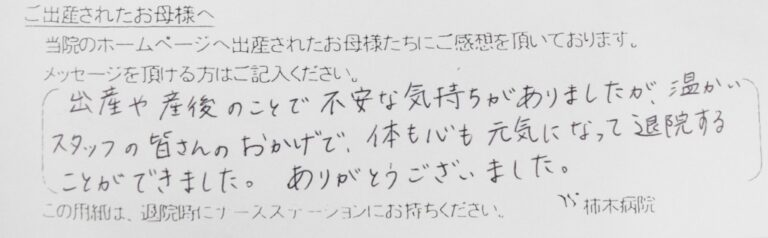 ご出産されたお母様へ
当院のホームページへ出産されたお母様たちにご感想を頂いております。
メッセージを頂ける方はご記入ください。
出産や産後のことで不安な気持ちがありましたが、温かい
スタッフの皆さんのおかげで、体も心も元気になって退院する
ことができました。ありがとうございました。
この用紙は、退院時にナースステーションにお持ちください。 柿木病院